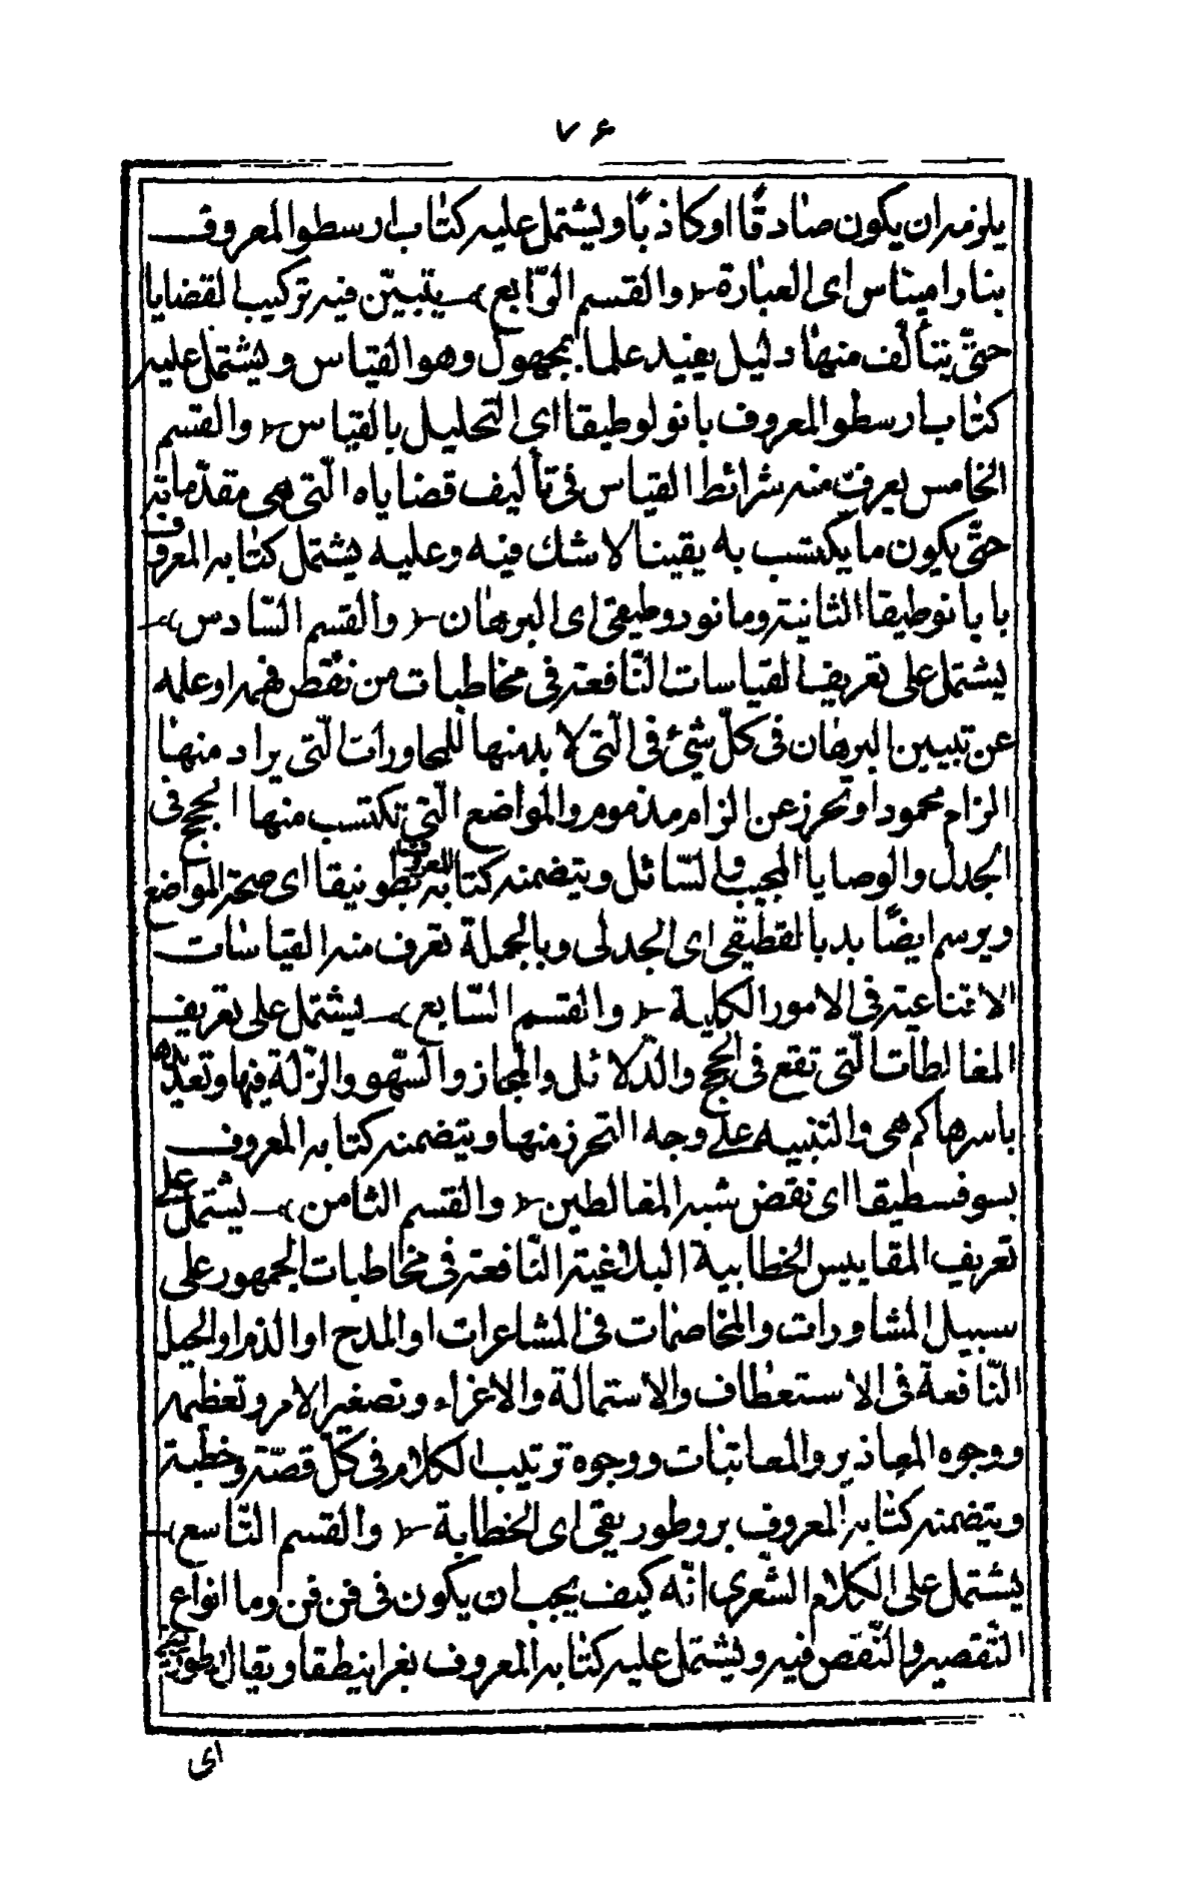 ٧٦
يلزمه ان يكون صادقًا او كاذبًا ويشتمل عليه كتاب ارسطو المعروف
بباراميناس اى العبارة (والقسم الرّابع) يتبيّن فيه تركيب القضايا
حتّى يتألّف منها دليل يفيد علما بمجهول وهو القياس ويشتمل عليه
كتاب ارسطو المعروف بانولوطيقا اي التحليل بالقياس (والقسم
الخامس يعرف منه شرائط القياس فى تأليف قضاياه الّتى هى مقدّماته
حتّى يكون ما يكتسب به يقينا لا شك فيه وعليه يشتمل كتابه المعروف
بابانوطيقا الثانية ومانودوطيقى اى البرهان (والقسم السّادس)
يشتمل على تعريف القياسات النّافعة فى مخاطبات من نقص فهمه او علمه
عن تبيين البرهان فى كلّ شئ فى الّتى لا بد منها للمحاورات الّتى يراد منها
الزام محمود او تحرز عن الزام مذموم والمواضع الّتى تكتسب منها الحجج فى
الجدل والوصايا المجيب والسّائل ويتضمنه كتابه المعروف بطوبنيقا اى صحة المواضع
ويرسم ايضًا بدبالقطيقى اى الجدلى وبالجملة تعرف منه القياسات
الاقناعية فى الامور الكلية (والقسم السّابع) يشتمل على تعريف
المغالطات الّتى تقع فى الحجج والدّلائل والمجاز والسّهو والزّلة فيها وتعديدها
باسرها كم هى والتنبيه على وجه التحرز منها ويتضمنه كتابه المعروف
بسوفسطيقا اى نقض شبه المغالطين (والقسم الثامن) يشتمل على
تعريف المقاييس الخطابية البلاغية النّافعة فى مخاطبات الجمهور على
سبيل المشاورات والمخاصمات فى المشاعرات او المدح او الذم او الحيل
النّافعة فى الاستعطاف والاستمالة والاغراء وتصغير الامر وتعظيمه
ووجوه المعاذير والمعاتبات ووجوه ترتيب الكلام فى كلّ قصّة وخطبة
ويتضمنه كتابه المعروف بروطوريقى اى الخطابة (والقسم التّاسع)
يشتمل على الكلام الشّعرى انّه كيف يجب ان يكون فى فن فن وما انواع
التّقصير والنّقص فيه ويشتمل عليه كتابه المعروف بغرابنيطقا ويقال
اى